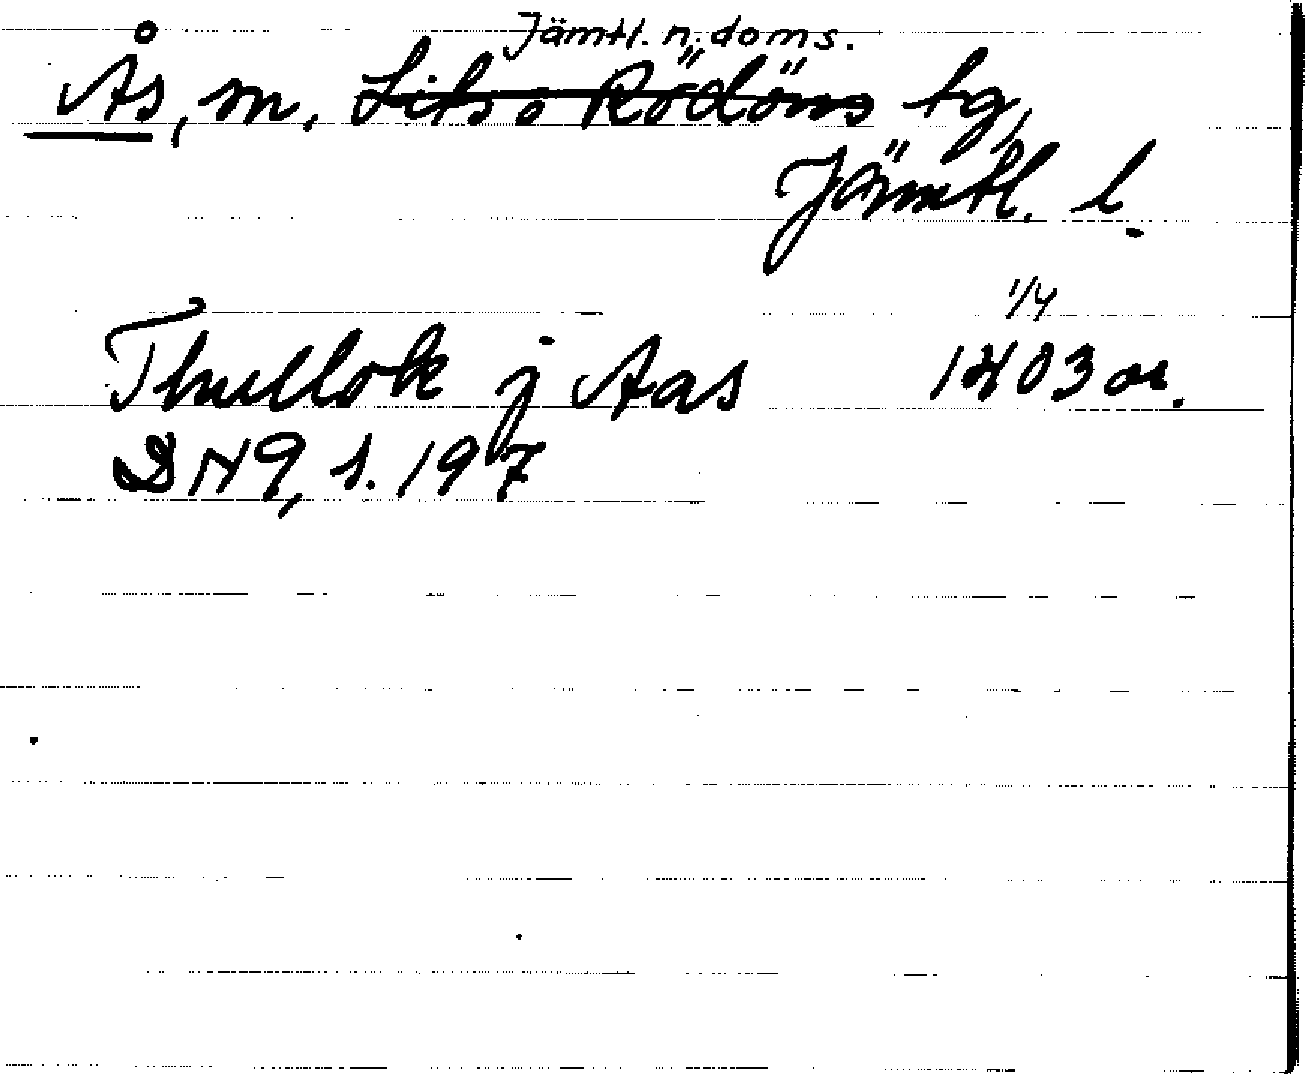 Jämtl. n. doms.
Ås, sn, Lits o Rödöns tg,
Jämtl. l.
1/4
Thullok j Aas 1403 or.
DN 9, s. 197